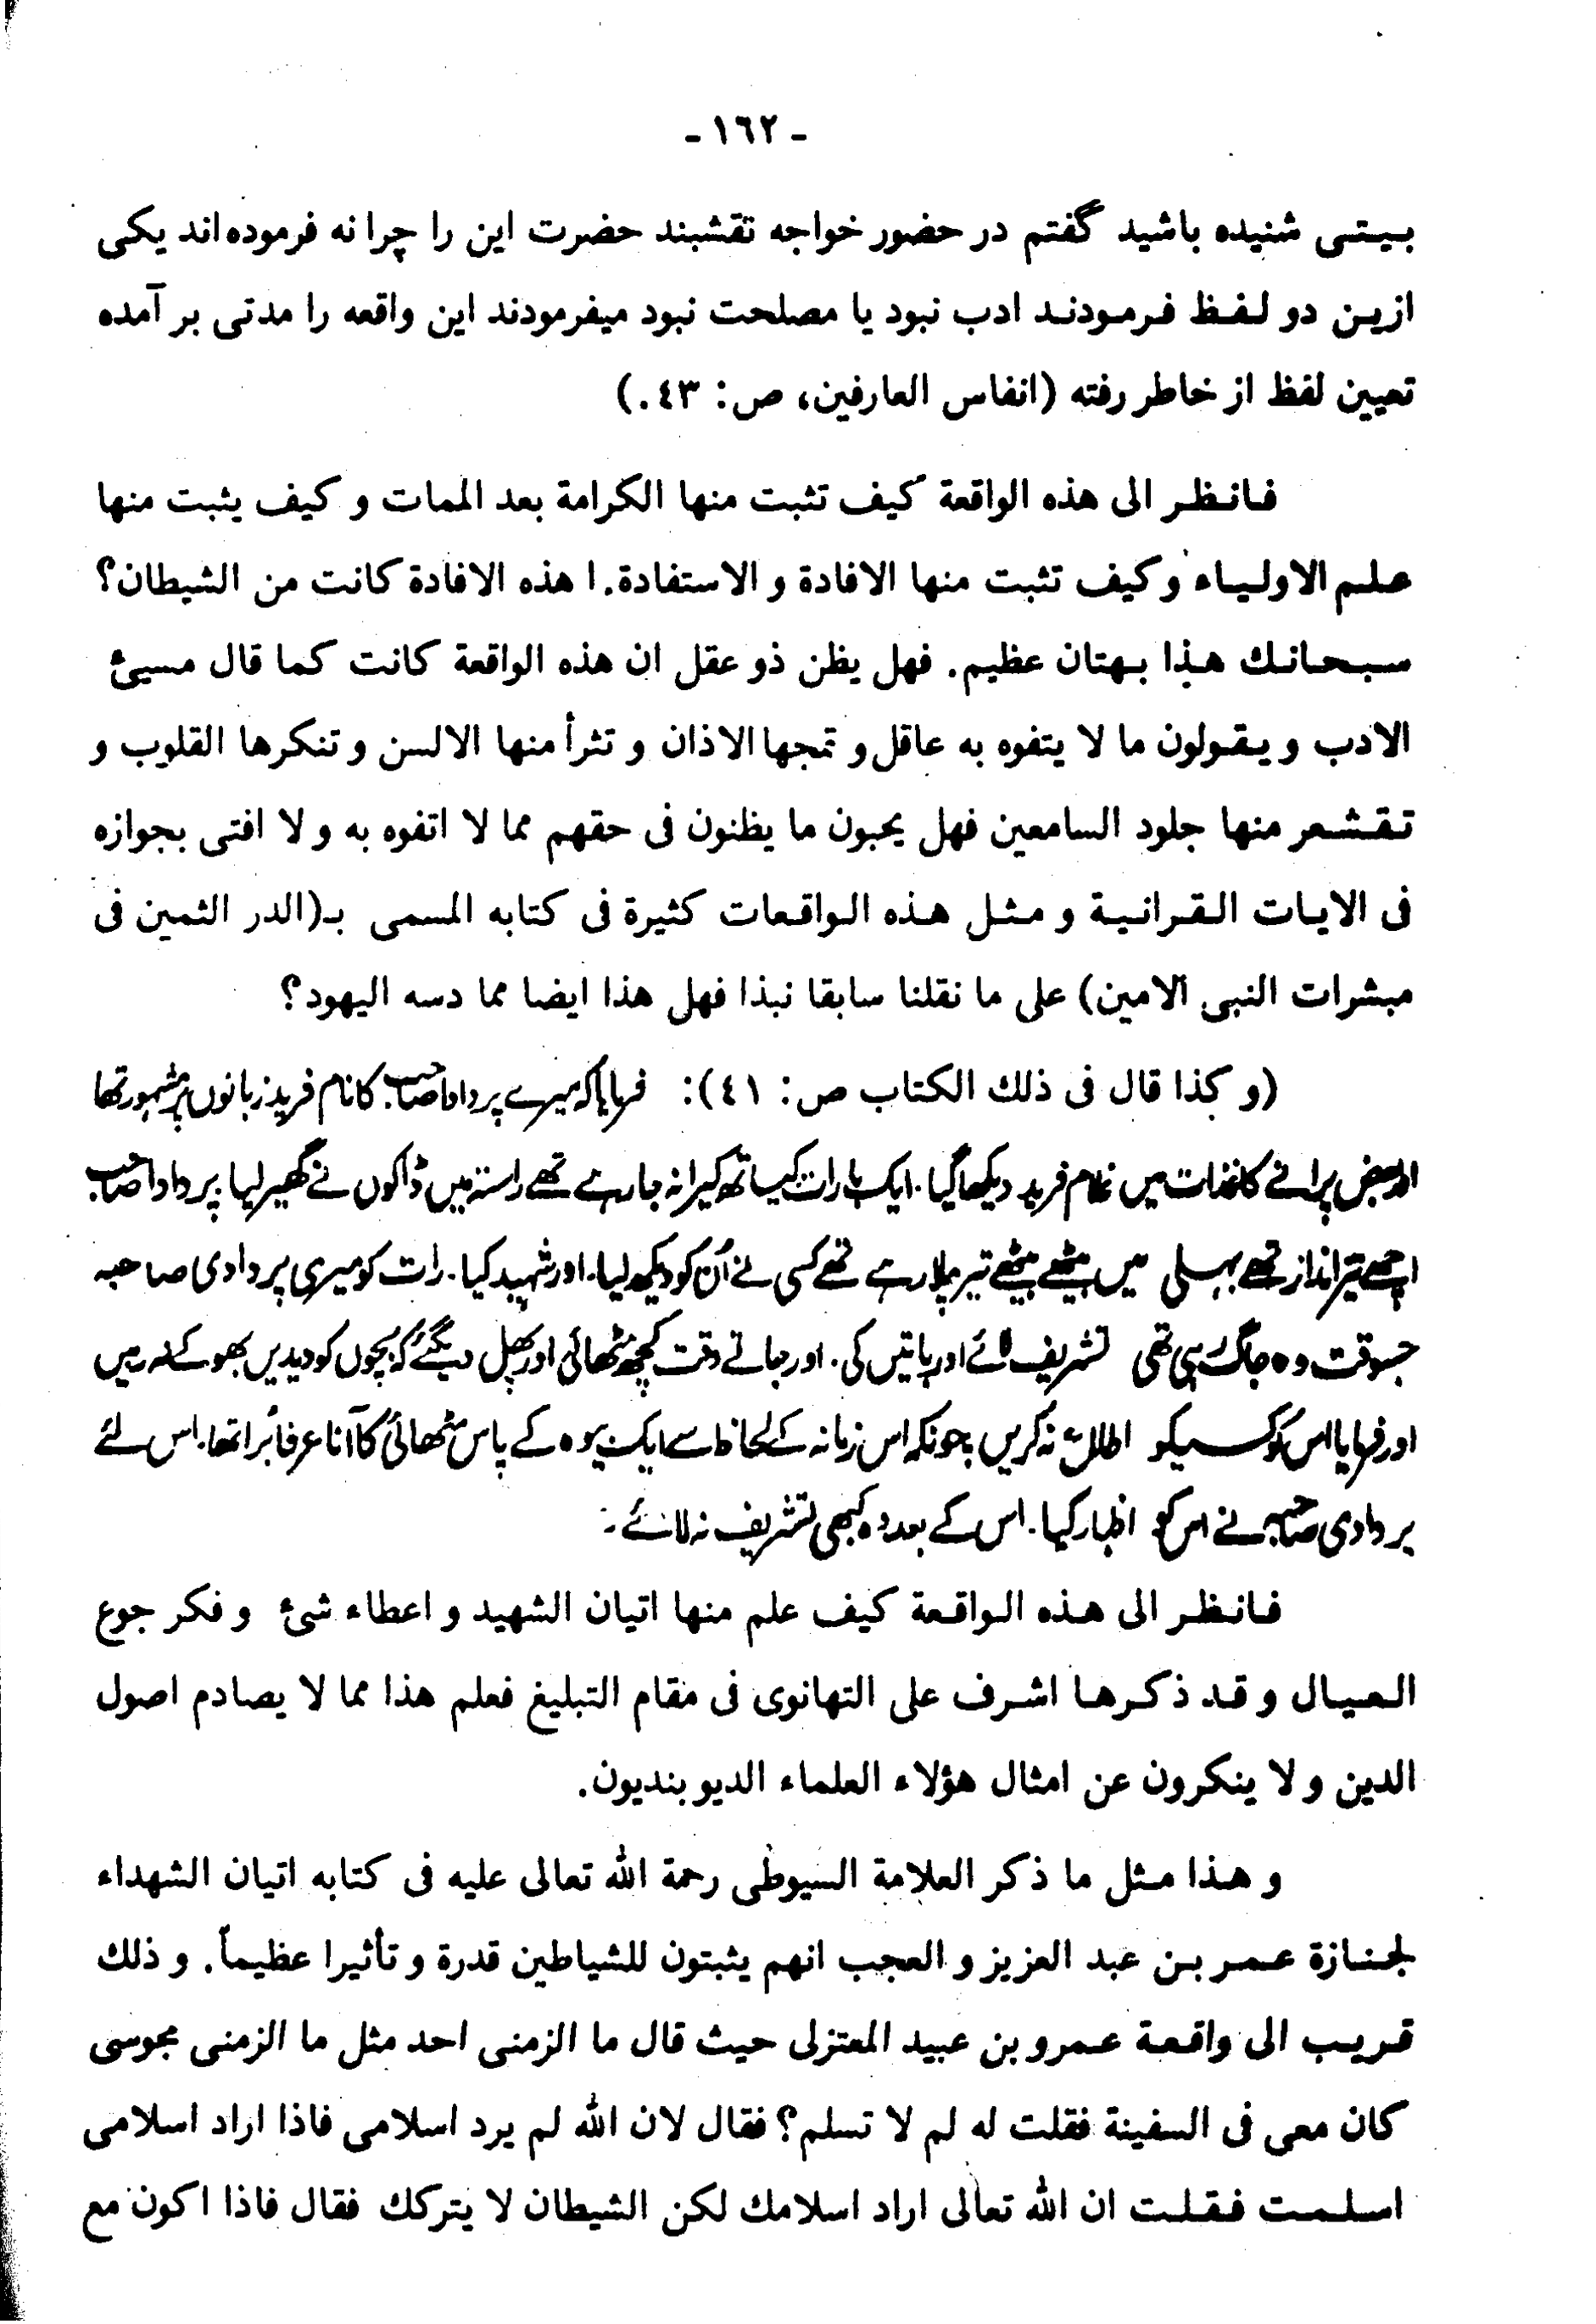 - ١٦٢ -
بـيـتـى شنيده باشيد گفتم در حضور خواجه نقشبند حضرت اين را چرا نه فرموده‌اند يكى
ازيـن دو لـفـظ فـرمـودنـد ادب نبود يا مصلحت نبود ميفرمودند اين واقعه را مدتى بر آمده
تعيين لفظ از خاطر رفته (انفاس العارفين، ص: ٤٣.)
فـانـظـر الى هذه الواقعة كيف تثبت منها الكرامة بعد الممات و كيف يثبت منها
عـلـم الاولـيـاء و كيف تثبت منها الافادة و الاستفادة. ا هذه الافادة كانت من الشيطان؟
سـبـحـانـك هـذا بـهتان عظيم. فهل يظن ذو عقل ان هذه الواقعة كانت كما قال مسيئ
الادب و يـقـولون ما لا يتفوه به عاقل و تمجها الاذان و تثرأ منها الالسن و تنكرها القلوب و
تـقـشـعر منها جلود السامعين فهل يحبون ما يظنون فى حقهم مما لا اتفوه به و لا افتى بجوازه
فى الايـات الـقـرانـيـة و مـثـل هـذه الـواقـعات كثيرة فى كتابه المسمى بـ(الدر الثمين فى
مبشرات النبى الامين) على ما نقلنا سابقا نبذا فهل هذا ايضا مما دسه اليهود؟
(و كذا قال فى ذلك الكتاب ص: ٤١): فرمایا کہ میرے پردادا صاحب کا نام فرید زبانوں پر مشہور تھا
اور بعض پرانے کاغذات میں غلام فرید دیکھا گیا. ایک بارات کیساتھ کیرانہ جا رہے تھے راستہ میں ڈاکوں نے گھیر لیا پردادا صاحب
اچھے تیر انداز تھے بہلی میں بیٹھے بیٹھے تیر چلا رہے تھے کسی نے اُن کو دیکھ لیا. اور شہید کیا. رات کو میری پردادی صاحبہ
جسوقت وہ جاگ رہی تھی تشریف لائے اور باتیں کی. اور جاتے وقت کچھ مٹھائی اور پھل دیگئے کہ بچوں کو دیدیں بھوکے نہ رہیں
اور فرمایا اس کو کسیکو اطلاع نہ کریں چونکہ اس زمانہ کے لحاظ سے ایک بیوہ کے پاس مٹھائی کا آنا عرفاً بُرا تھا. اس لئے
پردادی صاحبہ نے اس کو اظہار کیا. اس کے بعد وہ کبھی تشریف نہ لائے.
فـانـظـر الى هـذه الـواقـعة كيف علم منها اتيان الشهيد و اعطاء شئ و فكر جوع
الـعـيـال و قـد ذكـرهـا اشـرف على التهانوى فى مقام التبليغ فعلم هذا مما لا يصادم اصول
الدين و لا ينكرون عن امثال هؤلاء العلماء الديوبنديون.
و هـذا مـثل ما ذكر العلامة السيوطى رحمة الله تعالى عليه فى كتابه اتيان الشهداء
لجنـازة عـمـر بـن عبد العزيز و العجب انهم يثبتون للشياطين قدرة و تأثيرا عظيماً. و ذلك
قـريـب الى واقـعـة عـمـرو بن عبيد المعتزلى حيث قال ما الزمنى احد مثل ما الزمنى مجوسى
كان معى فى السفينة فقلت له لم لا تسلم؟ فقال لان الله لم يرد اسلامى فاذا اراد اسلامى
اسـلـمـت فـقـلـت ان الله تعالى اراد اسلامك لكن الشيطان لا يتركك فقال فاذا اكون مع